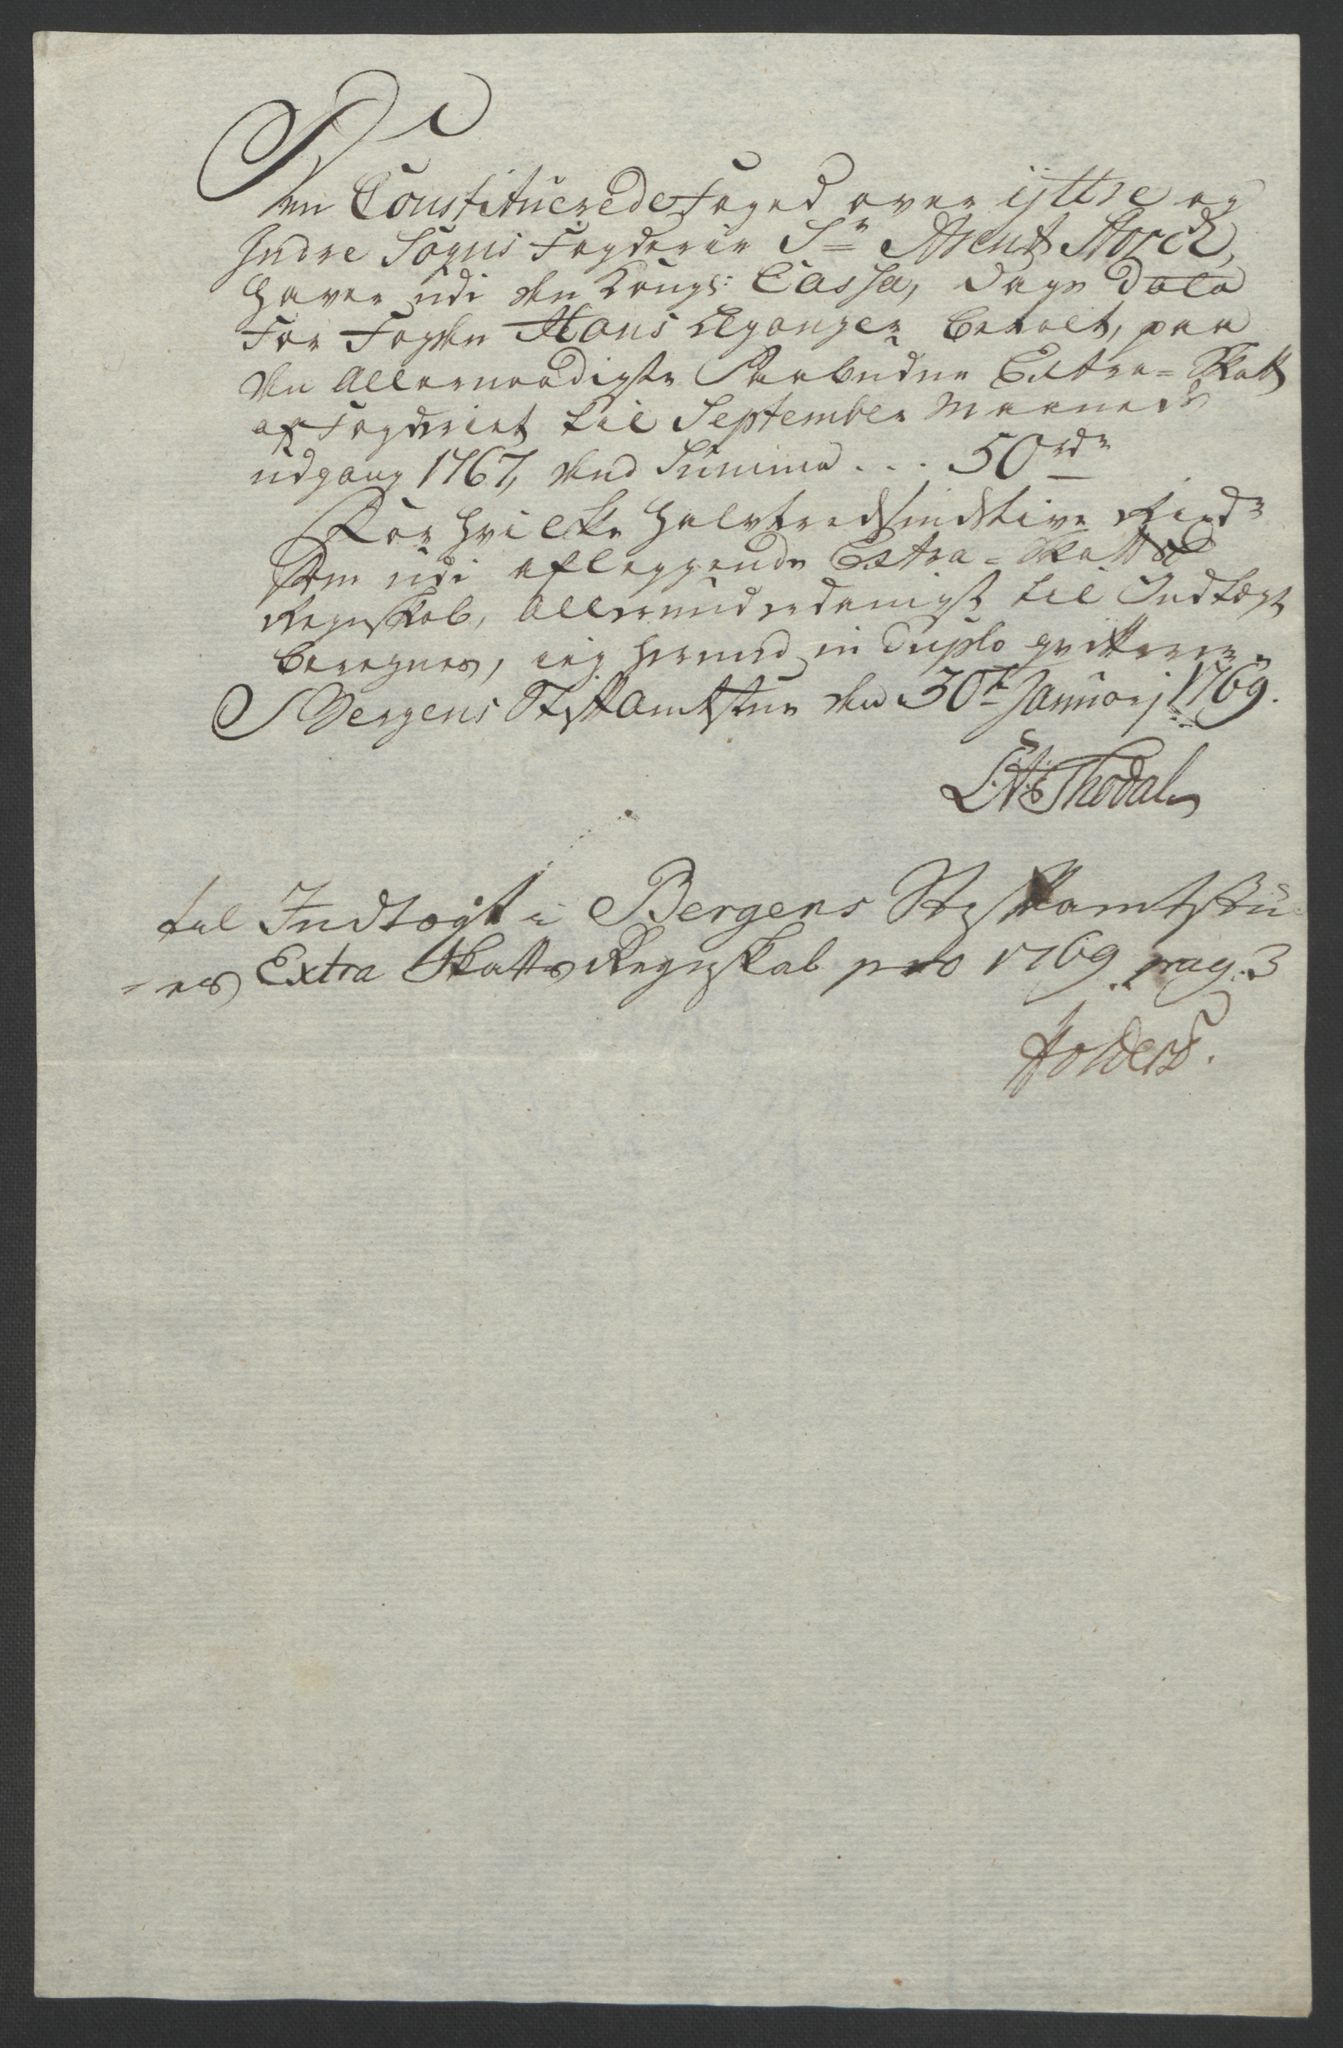 Den Constituerede Foged over ijttre og
Indre Sogns Fogderie Sr Arent Storch,
haver udi den Kongl: Cassa, dags dato
for Fogden Hans Leganger betalt, paa
den Allernaadigste Paabudne Extra-Skatt
af Fogderiet til September Maaneds
udgang 1767, den Summa . . . 50 rdr
For hvilke halvtredsindstive Rixdr
som udi aflæggende Extra-Skatts
Regnskab, allerunderdanigst til Indtægt
beregnes, ieg hermed in duplo qvitterer.
Bergens Stiftamtstue den 30te Januarj 1769.
Thodal
til Indtægt i Bergens Stiftamtstu-
=es Extra Skatts Regnskab pro 1769 pag: 3
Holders.